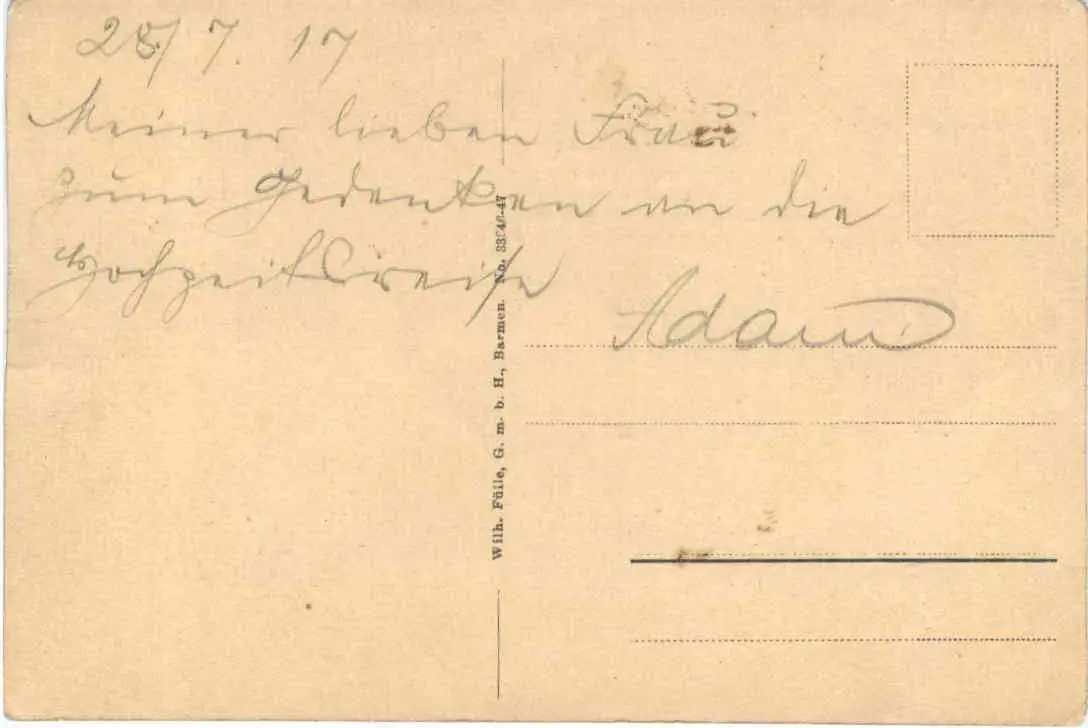 28/7.17
Meiner lieben Frau
zum Gedenken an die
Hochzeitsreise
Adam
Wilh. Fülle, G. m. b. H., Barmen. No. 33946-47